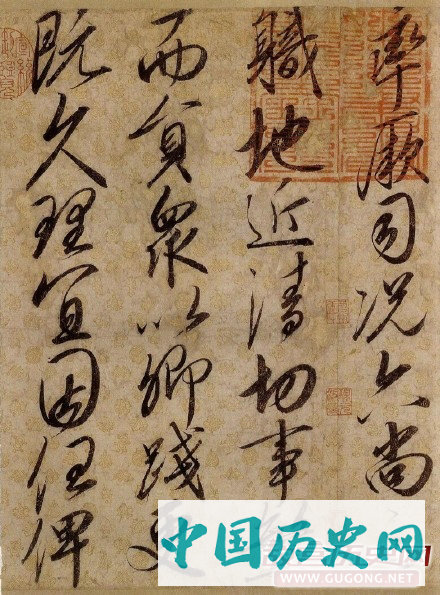 率厥司况六尚
職地近清切事
而員衆以卿踐更
既久理宜因任俾
中国历史网
WWW.GUGONG.NET